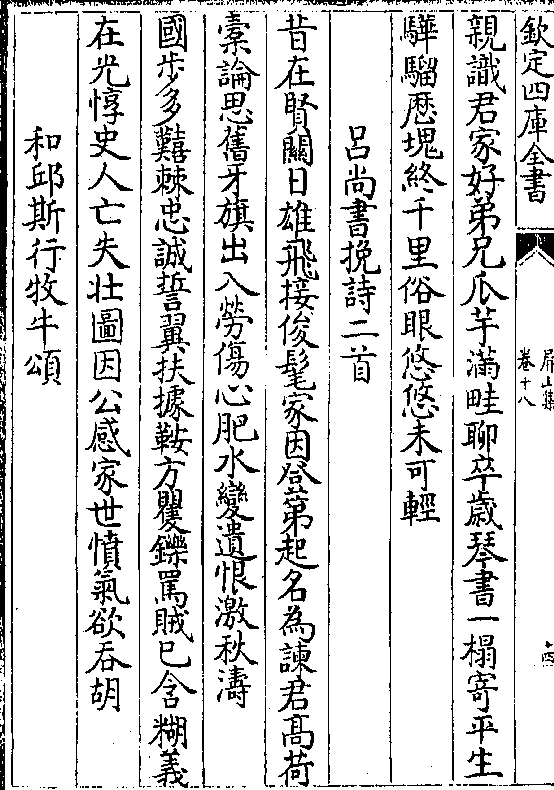 欽定四庫全書
屏山集
卷十八
四
親識君家好弟兄瓜芋滿畦聊卒歳琴書一榻寄平生
驊騮歴塊終千里俗眼悠悠未可輕
呂尚書挽詩二首
昔在賢關日雄飛接俊髦家因登第起名為諫君髙荷
橐論思舊牙旗出入勞傷心肥水變遺恨激秋濤
國步多囏棘忠誠誓翼扶據鞍方矍鑠罵賊已含糊義
在光惇史人亡失壮圖因公感家世憤氣欲吞胡
和邱斯行牧牛頌